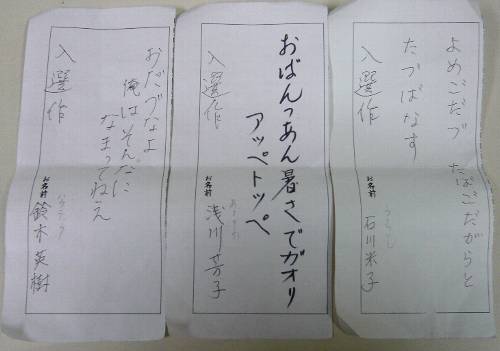 よめごだづ たばごだがらと
たづばなす
入選作
お名前 石川米子
おばんつあん暑さでガオリ
アッペトッペ
入選作
お名前 浅川芳子
おだづなよ
俺はそんなに
なまってねえ
入選作
お名前 鈴木英樹